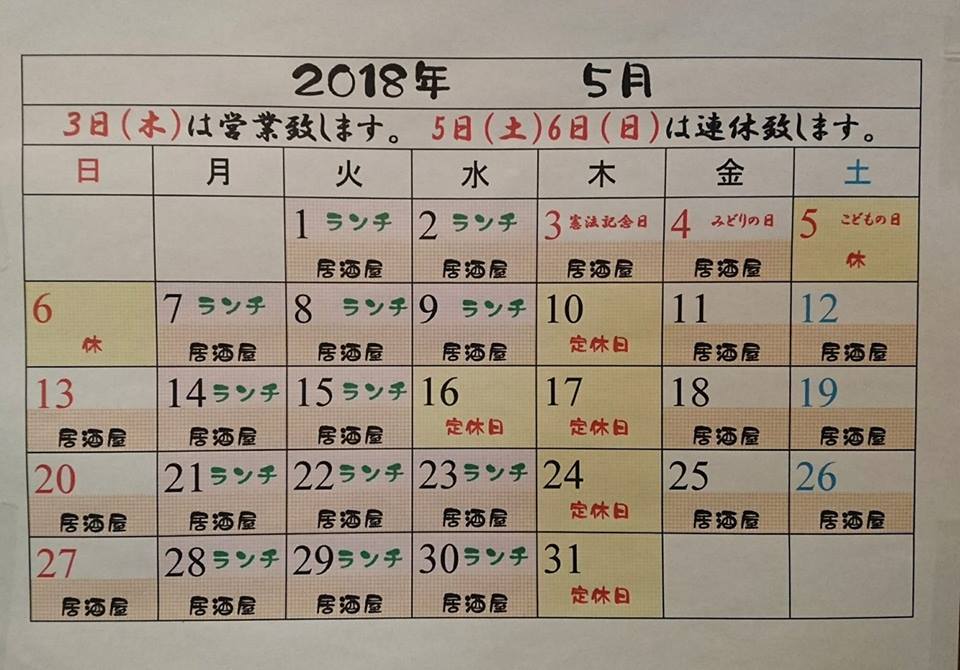 2018年 5月
3日(木)は営業致します。 5日(土)6日(日)は連休致します。
日 月 火 水 木 金 土
1 ランチ 2 ランチ 3 憲法記念日 4 みどりの日 5 こどもの日
居酒屋 居酒屋 居酒屋 居酒屋 休
6 7 ランチ 8 ランチ 9 ランチ 10 11 12
休 居酒屋 居酒屋 居酒屋 定休日 居酒屋 居酒屋
13 14 ランチ 15 ランチ 16 17 18 19
居酒屋 居酒屋 居酒屋 定休日 定休日 居酒屋 居酒屋
20 21 ランチ 22 ランチ 23 ランチ 24 25 26
居酒屋 居酒屋 居酒屋 居酒屋 定休日 居酒屋 居酒屋
27 28 ランチ 29 ランチ 30 ランチ 31
居酒屋 居酒屋 居酒屋 居酒屋 定休日